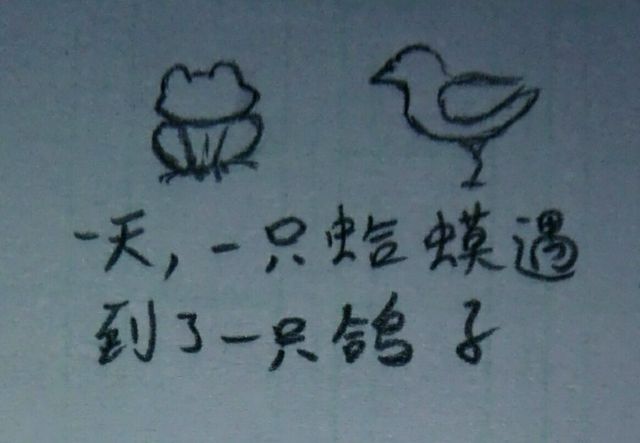 一天，一只蛤蟆遇
到了一只鸽子